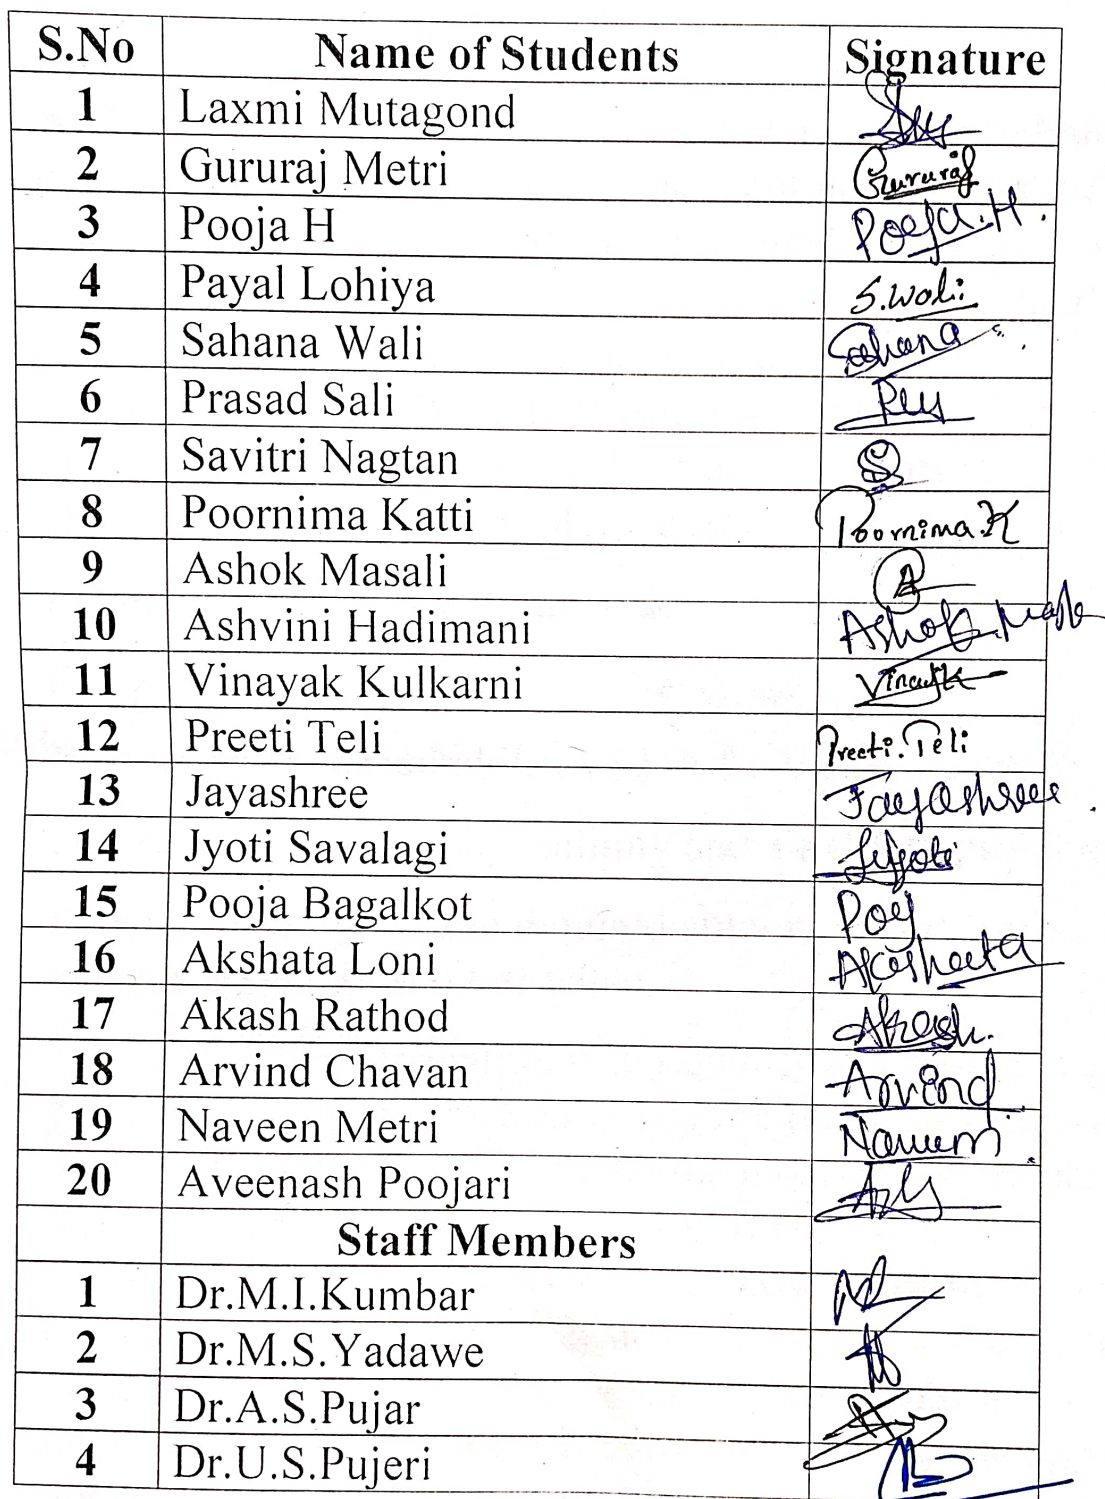 S.No Name of Students Signature
1 Laxmi Mutagond
2 Gururaj Metri Gururaj
3 Pooja H Pooja.H.
4 Payal Lohiya S.Wali
5 Sahana Wali Sahana
6 Prasad Sali
7 Savitri Nagtan S
8 Poornima Katti Poornima.K
9 Ashok Masali A
10 Ashvini Hadimani Ashok
11 Vinayak Kulkarni
12 Preeti Teli Preeti.Teli
13 Jayashree Jayashree
14 Jyoti Savalagi Jyoti
15 Pooja Bagalkot Pooj
16 Akshata Loni Akshata
17 Akash Rathod Akash.
18 Arvind Chavan Arvind
19 Naveen Metri Naveen
20 Aveenash Poojari
Staff Members
1 Dr.M.I.Kumbar
2 Dr.M.S.Yadawe
3 Dr.A.S.Pujar
4 Dr.U.S.Pujeri